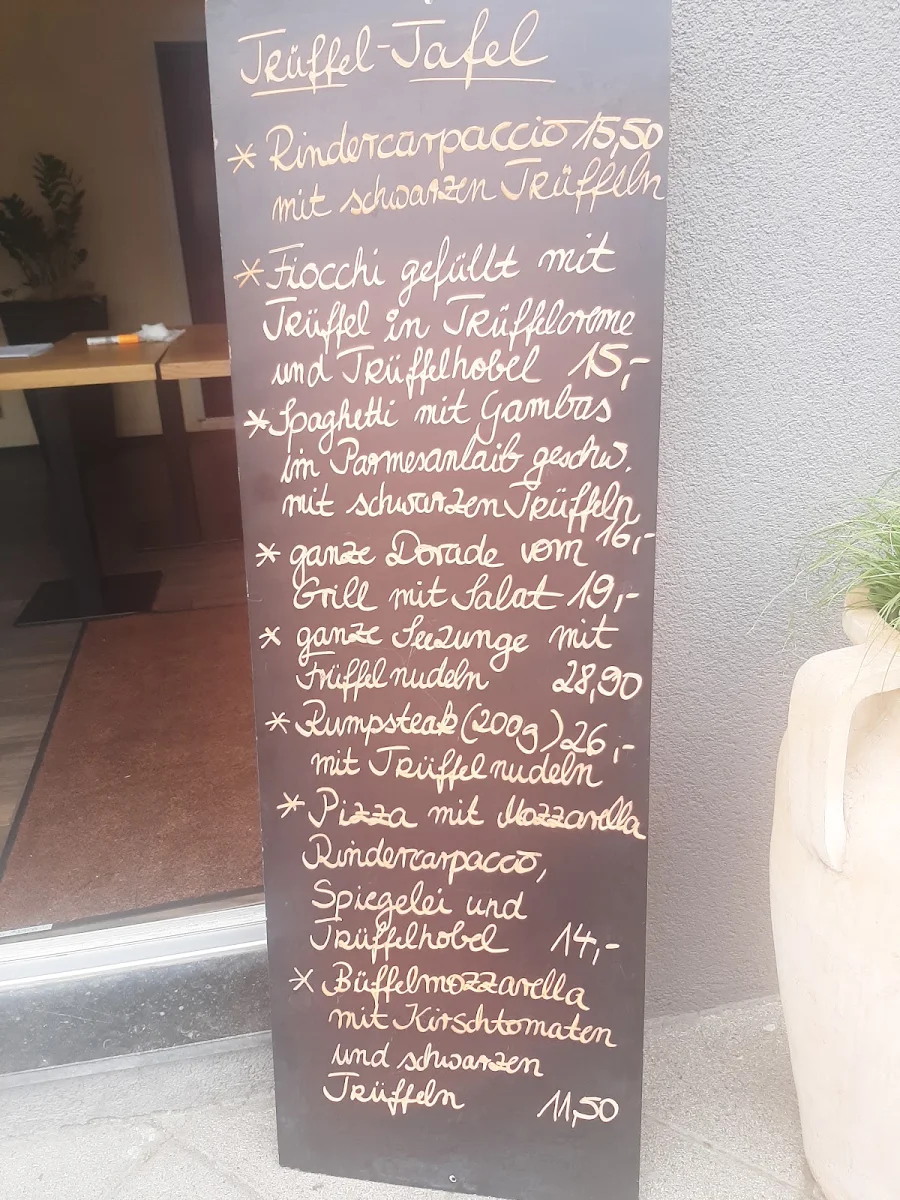 Trüffel-Tafel
* Rindercarpaccio 15,50
mit schwarzen Trüffeln
* Fiocchi gefüllt mit
Trüffel in Trüffelcreme
und Trüffelhobel 15,-
* Spaghetti mit Gambas
im Parmesanlaib geschw.
mit schwarzen Trüffeln
16,-
* ganze Dorade vom
Grill mit Salat 19,-
* ganze Seezunge mit
Trüffelnudeln 28,90
* Rumpsteak (200g) 26,-
mit Trüffelnudeln
* Pizza mit Mozzarella
Rindercarpacco,
Spiegelei und
Trüffelhobel 14,-
* Büffelmozzarella
mit Kirschtomaten
und schwarzen
Trüffeln 11,50